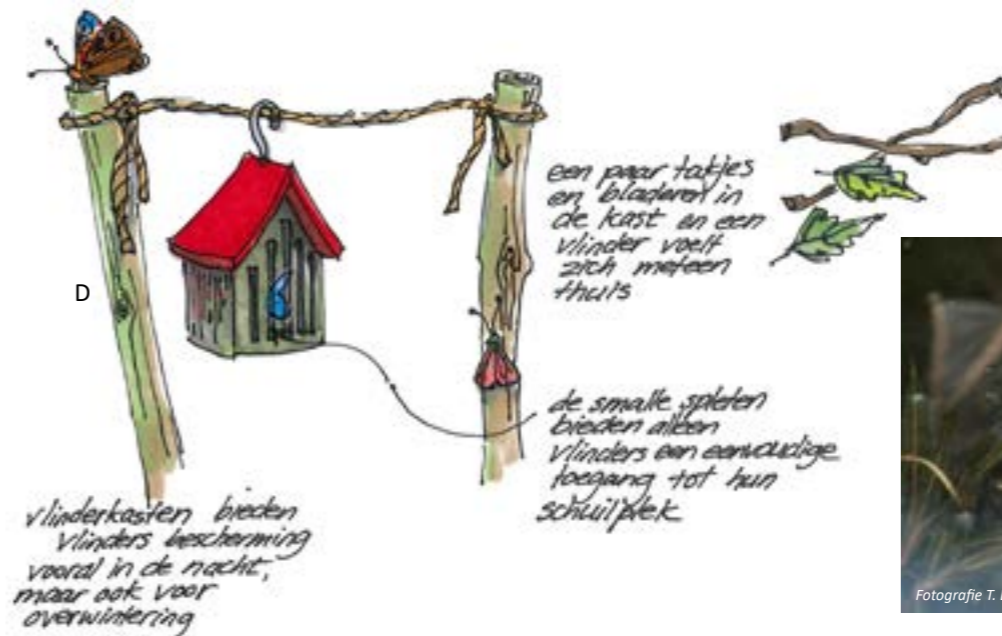 een paar takjes
en bladeren in
de kast en een
vlinder voelt
zich meteen
thuis
D
de smalle spleten
bieden alleen
vlinders een eenvoudige
toegang tot hun
schuilplek
vlinderkasten bieden
vlinders bescherming
vooral in de nacht,
maar ook voor
overwintering
Fotografie T.